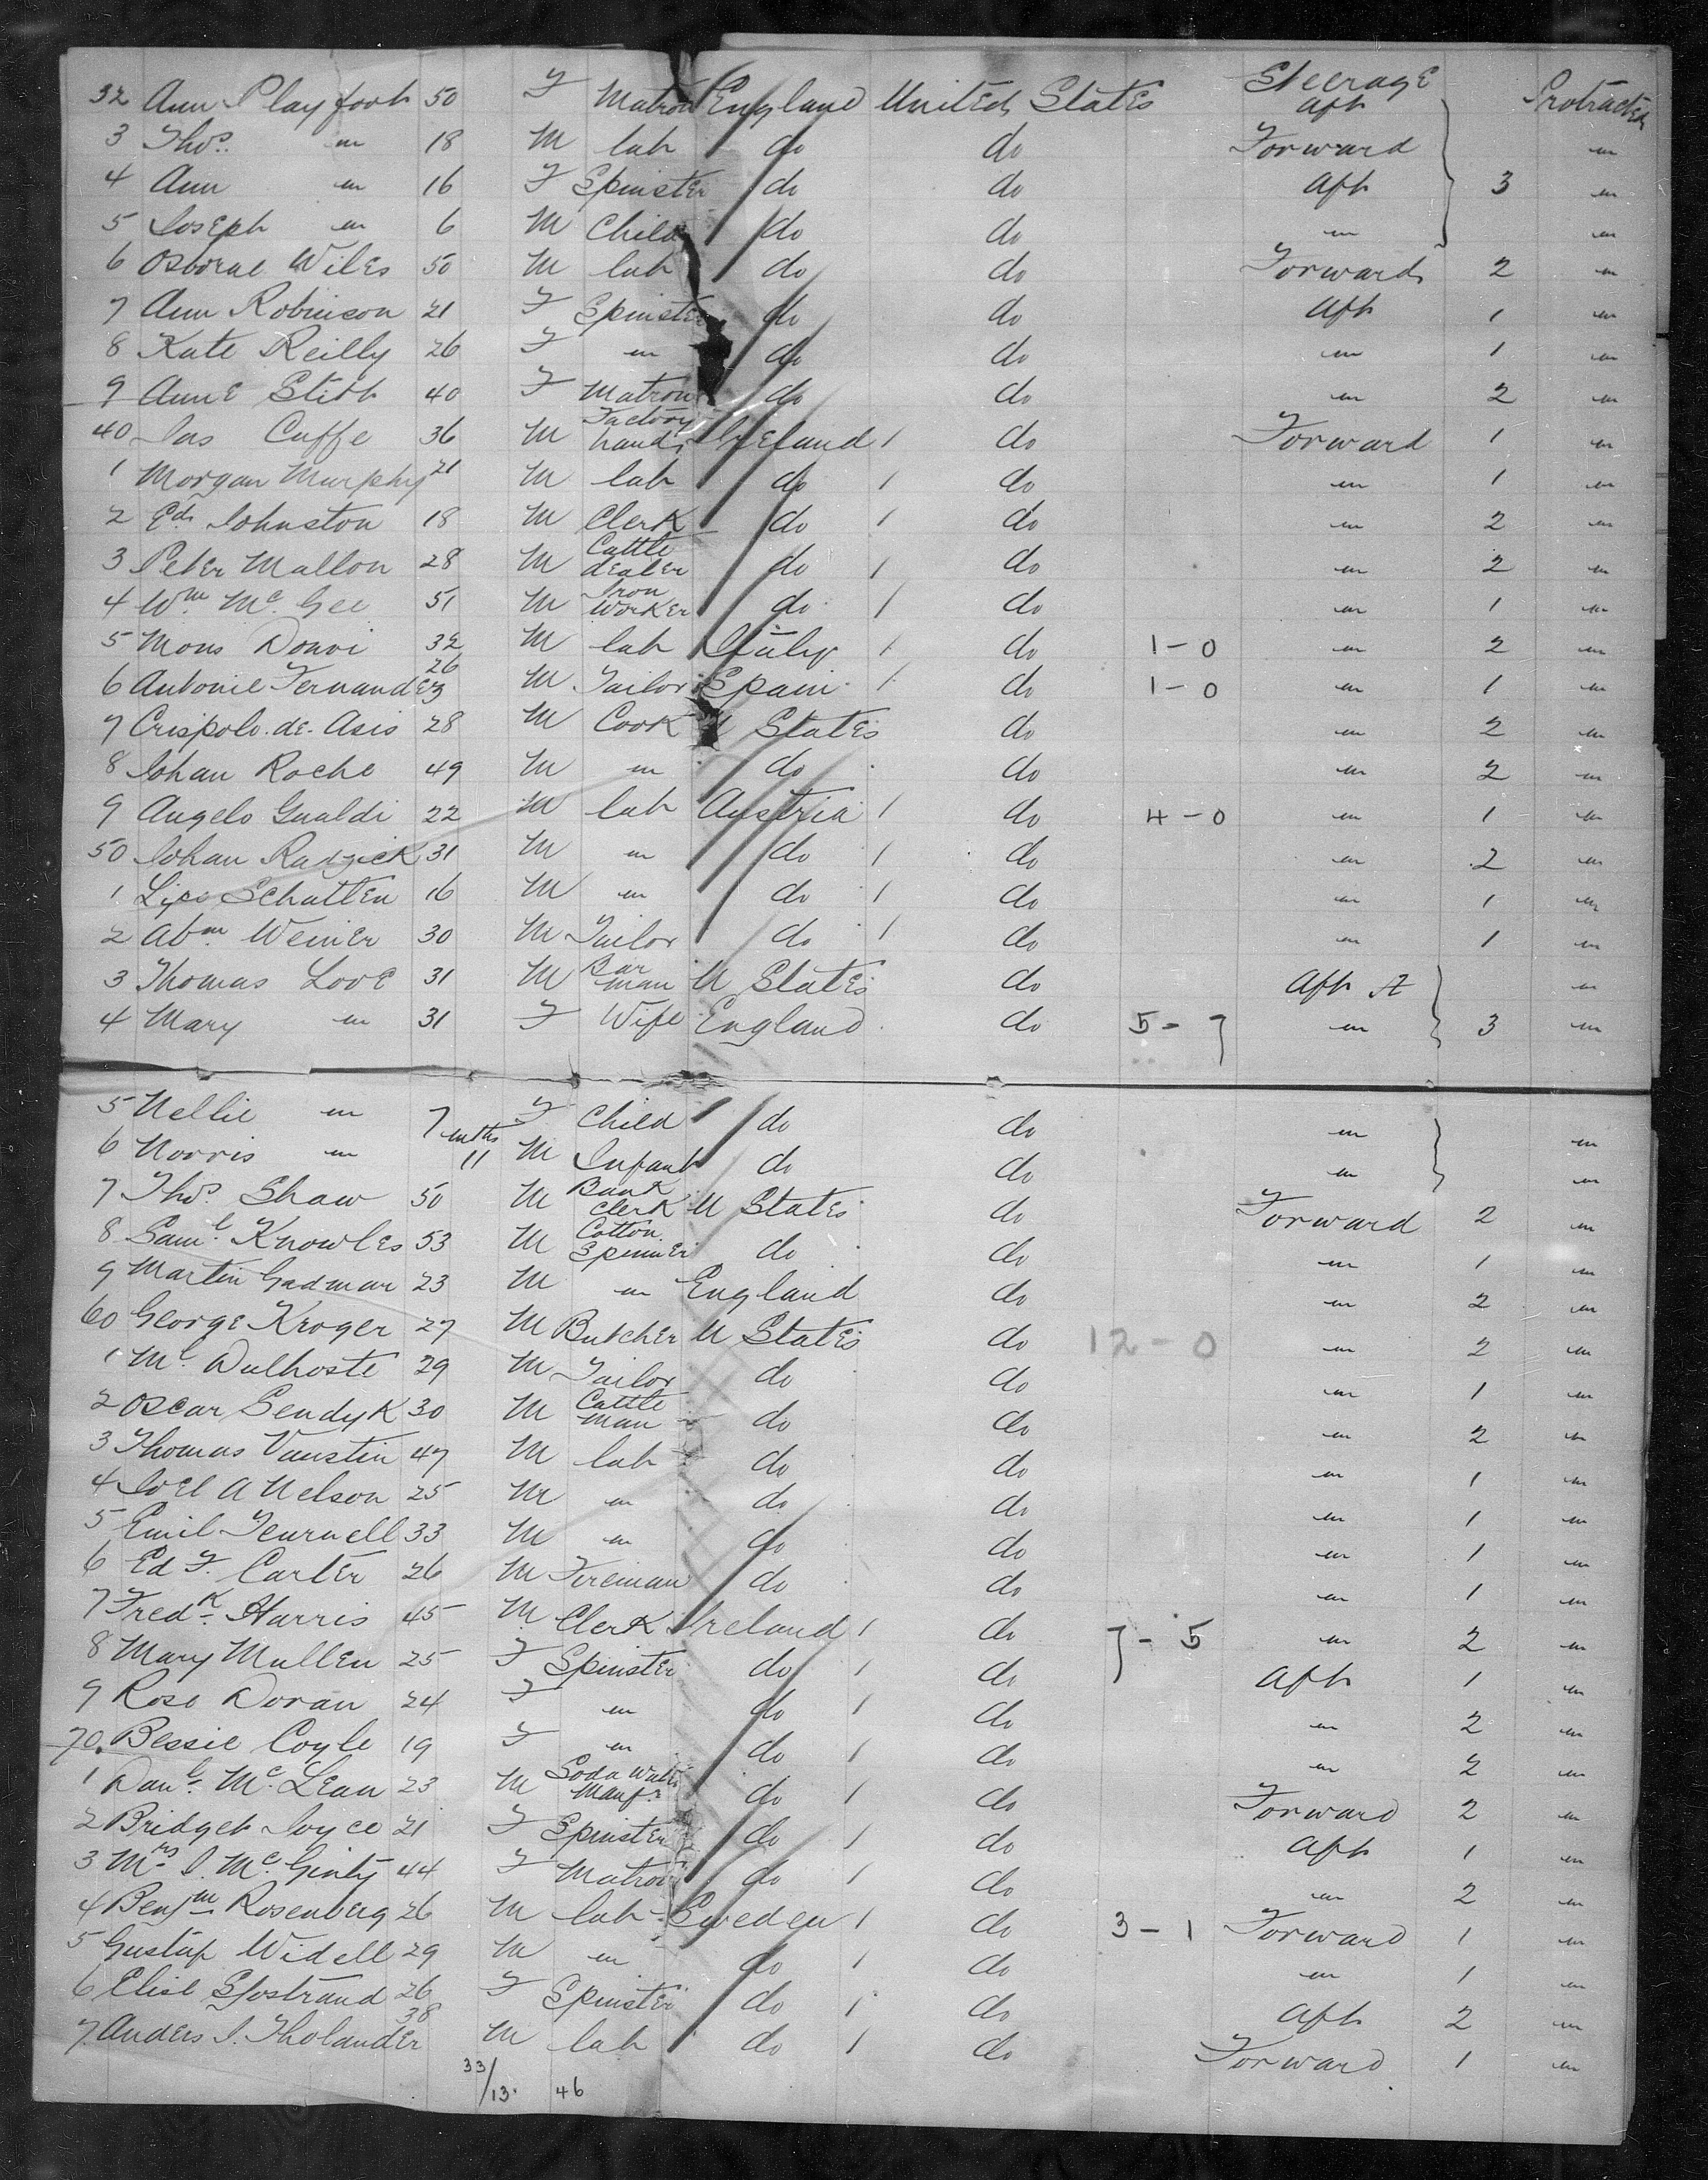 32 Ann Playfoot 50 F Matron England United States Steerage Aft Protracted
3 Thos. " 18 M lab do do Forward "
4 Ann " 16 F Spinster do do Aft 3 "
5 Joseph " 6 M Child do do " "
6 Osborne Wiles 50 M lab do do Forward 2 "
7 Ann Robinson 21 F Spinster do do Aft 1 "
8 Kate Reilly 26 F " do do " 1 "
9 Anne 40 F Matron do do " 2 "
40 Jas Cuffe 36 M Factory hand Ireland 1 do Forward 1 "
1 Morgan Murphy 21 M lab do 1 do " 1 "
2 Ed. Johnston 18 M Clerk do 1 do " 2 "
3 Peter Mallon 28 M Cattle dealer do 1 do " 2 "
4 Wm. Mc. Gee 51 M Iron Worker do 1 do " 1 "
5 Mons 32 M lab Italy 1 do 1-0 " 2 "
6 Antonie Fernandez 26 M Tailor Spain 1 do 1-0 " 1 "
7 Crispolo de Asis 28 M Cook U States do " 2 "
8 Johan Roche 49 M " do do " 2 "
9 Angelo Gualdi 22 M lab Austria 1 do 4-0 " 1 "
50 Johan 31 M " do 1 do " 2 "
1 Schatten 16 M " do 1 do " 1 "
2 Abm. Weiner 30 M Tailor do 1 do " 1 "
3 Thomas Love 31 M Bar man U States do Aft A "
4 Mary " 31 F Wife England do 5-7 " 3 "
5 Nellie " 7 F Child do do " "
6 Norris " 11 mths M Infant do do " "
7 Thos. Shaw 50 M Bank Clerk U States do Forward 2 "
8 Saml. Knowles 53 M Cotton Spinner do do " 1 "
9 Martin Gadmar 23 M " England do " 2 "
60 George Kroger 27 M Butcher U States do 12-0 " 2 "
1 Dulhoste 29 M Tailor do do " 1 "
2 Oscar Sendyk 30 M Cattle man do do " 2 "
3 Thomas Vanstin 47 M lab do do " 1 "
4 Joel A Nelson 25 M " do do " 1 "
5 Emil 33 M " do do " 1 "
6 Ed F. Carter 26 M Fireman do do " 1 "
7 Fredk. Harris 45 M Clerk Ireland 1 do 7-5 " 2 "
8 Mary Mullen 25 F Spinster do 1 do Aft 1 "
9 Rose Doran 24 F " do 1 do " 2 "
70 Bessie Coyle 19 F " do 1 do " 2 "
1 Danl. Mc. Lean 23 M Soda Water Manfr do 1 do Forward 2 "
2 Bridget Joyce 21 F Spinster do 1 do Aft 1 "
3 Mrs J. Mc. Ginty 44 F Matron do 1 do " 2 "
4 Benjm Rosenberg 26 M lab Sweden 1 do 3-1 Forward 1 "
5 Gustaf Widell 29 M " do 1 do " 1 "
6 Elise Sjostrand 26 F Spinster do 1 do Aft 2 "
7 Anders J. Tholander 38 M lab do 1 do Forward 1 "
33/13 46